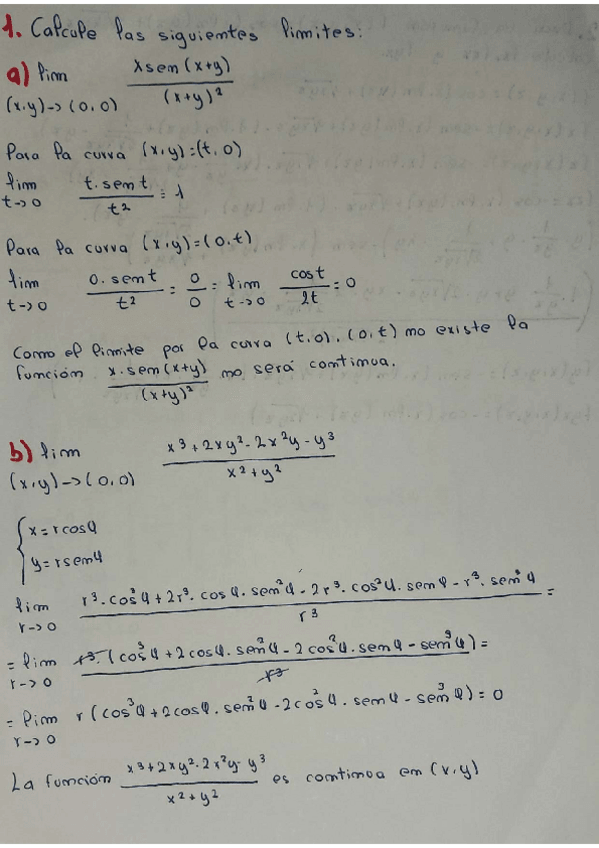 1. Calcule las siguientes limites:
a) lim (x,y)->(0,0) x sen(x+y) / (x+y)²
Para la curva (x,y)=(t,0)
lim t->0 t.sent / t² = 1
Para la curva (x,y)=(0,t)
lim t->0 0.sent / t² = 0/0 = lim t->0 cost / 2t = 0
Como el limite por la curva (t,0), (0,t) no existe la
función x.sen(x+y) / (x+y)² no será continua.
b) lim (x,y)->(0,0) x³+2xy²-2x²y-y³ / x²+y²
{ x=rcosφ
y=rsenφ
lim r->0 r³.cos³φ+2r³.cosφ.sen²φ-2r³.cos²φ.senφ-r³.sen³φ / r³ =
= lim r->0 r³.(cos³φ+2cosφ.sen²φ-2cos²φ.senφ-sen³φ) / r³ =
= lim r->0 r(cos³φ+2cosφ.sen²φ-2cos²φ.senφ-sen³φ)=0
La función x³+2xy²-2x²y-y³ / x²+y² es continua en (x,y)